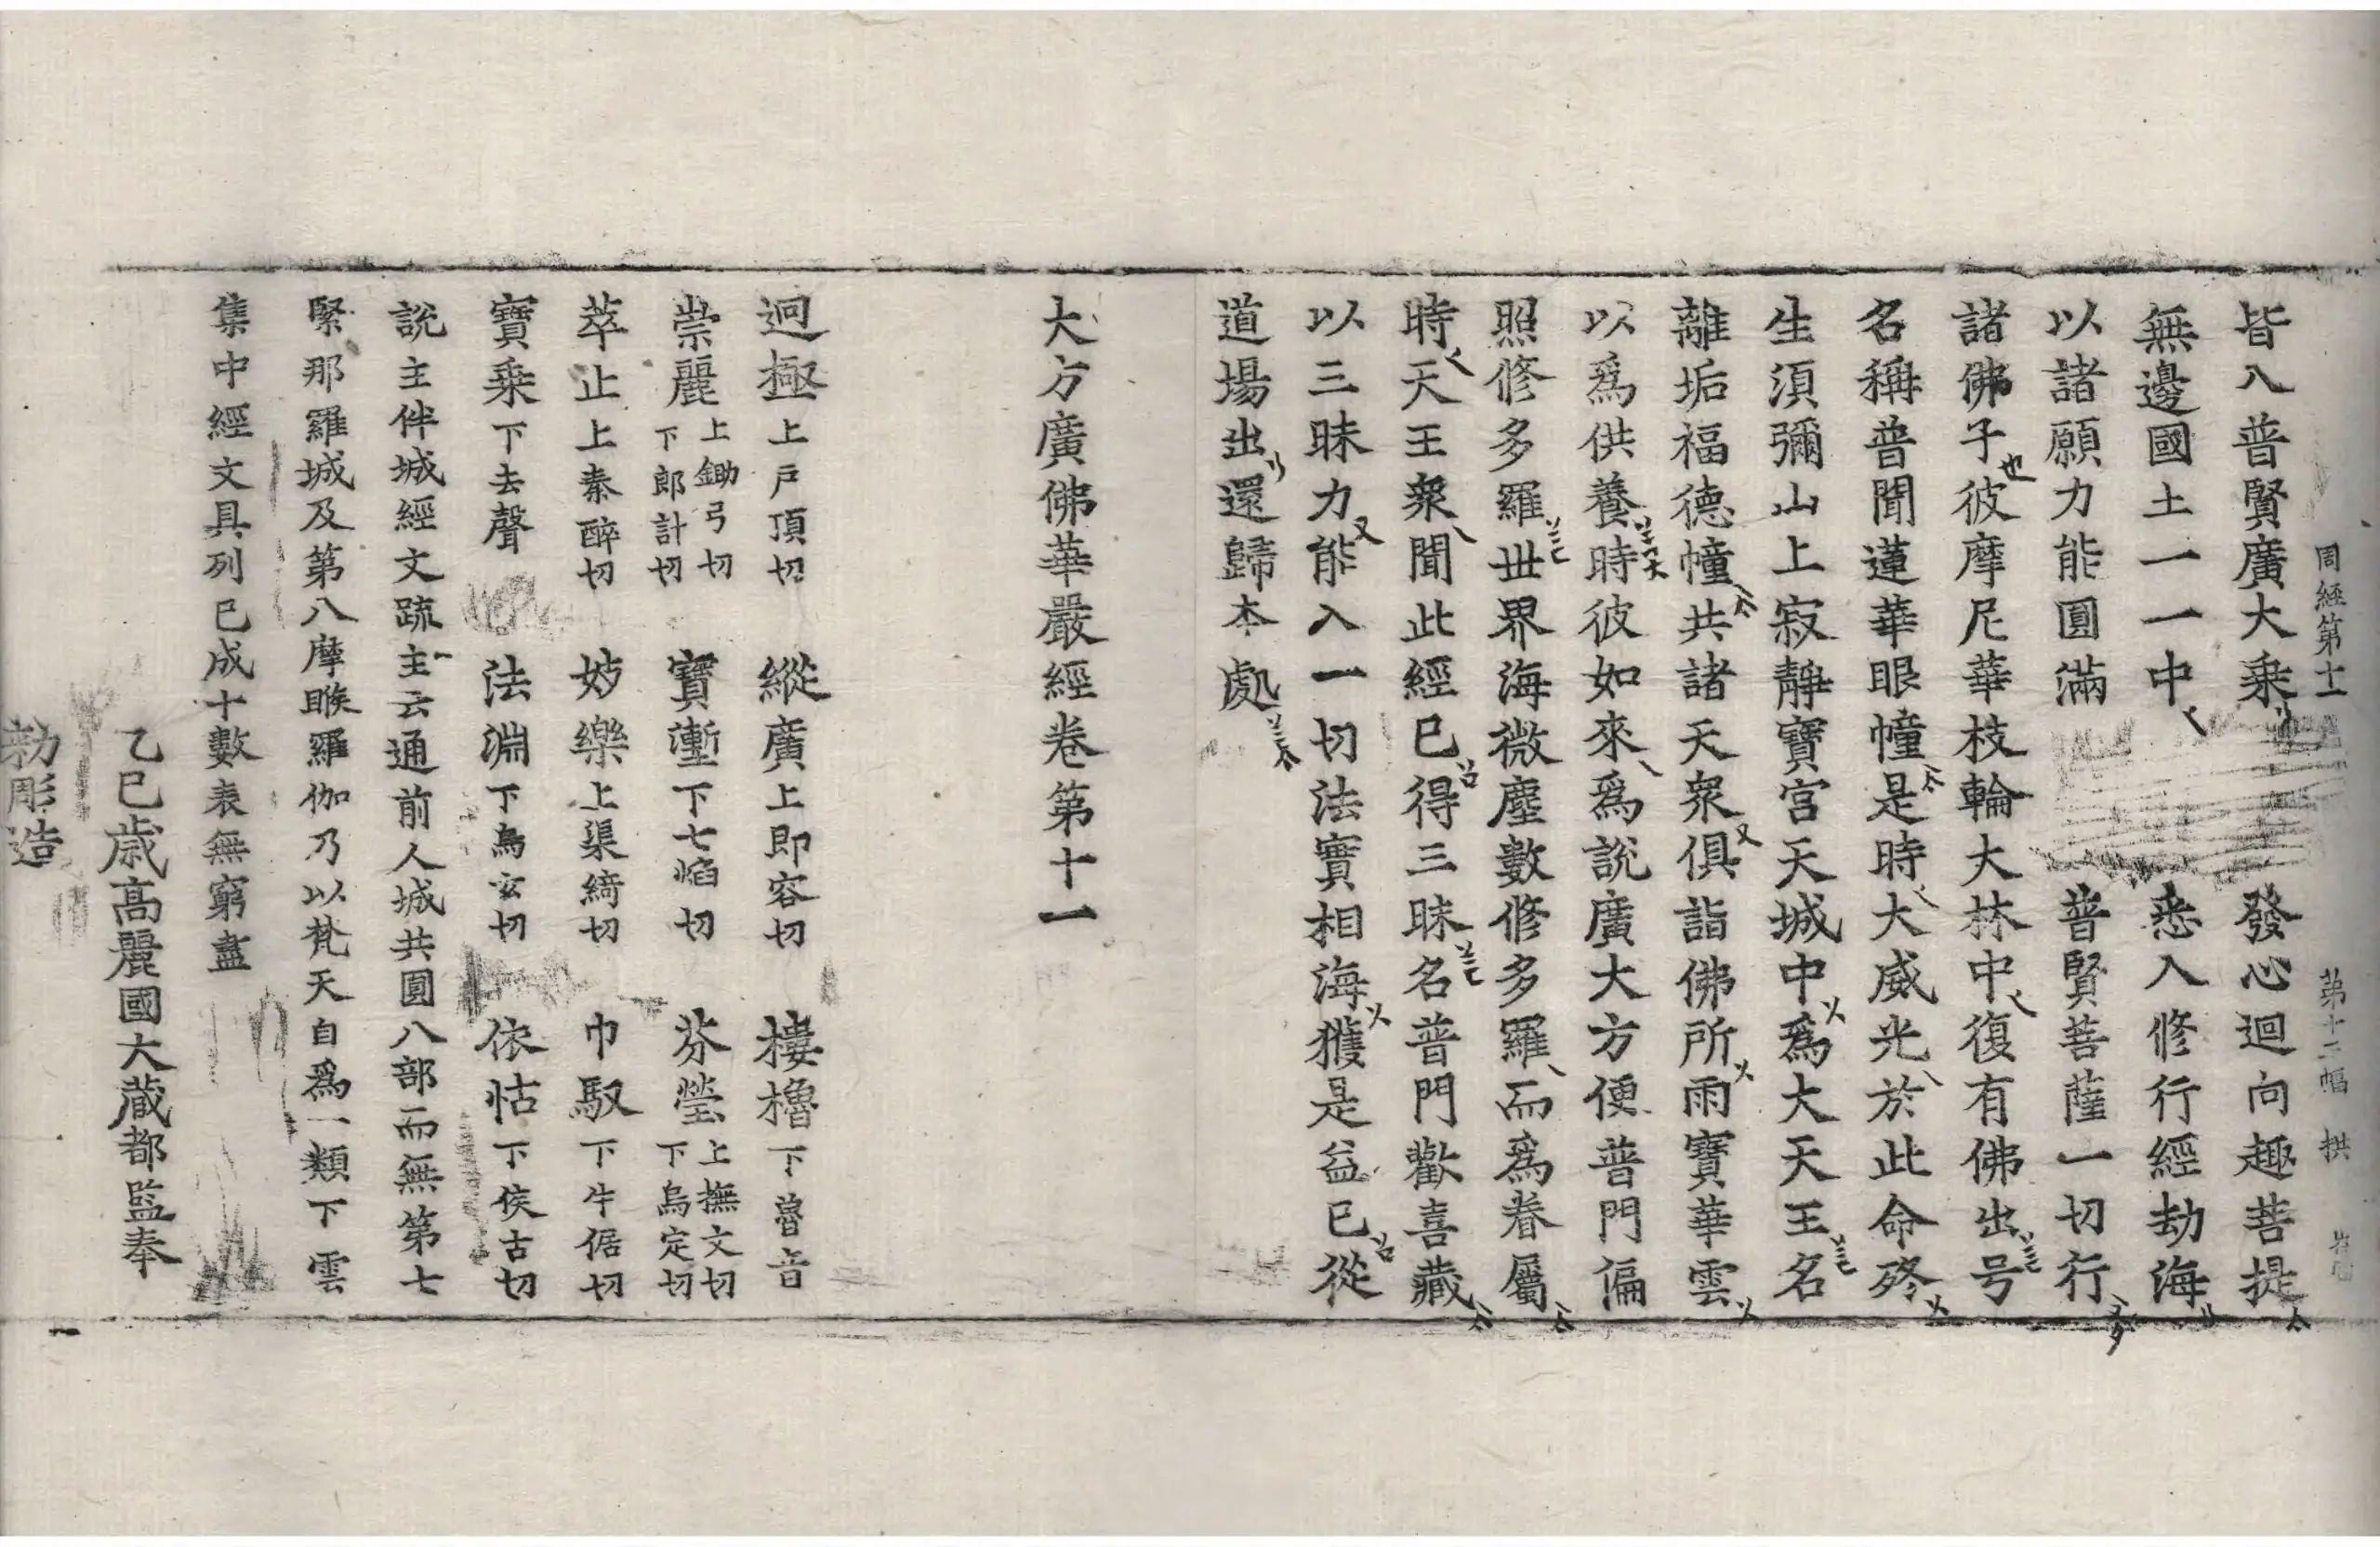 周經第十一　第十二幅　拱
皆入普賢廣大乘　發心迴向趣菩提
無邊國土一一中　悉入修行經劫海
以諸願力能圓滿　普賢菩薩一切行
諸佛子彼摩尼華枝輪大林中復有佛出号
名稱普聞蓮華眼幢是時大威光於此命終
生須彌山上寂靜寶宮天城中爲大天王名
離垢福德幢共諸天衆俱詣佛所雨寶華雲
以爲供養時彼如來爲說廣大方便普門徧
照修多羅世界海微塵數修多羅而爲眷屬
時天王衆聞此經已得三昧名普門歡喜藏
以三昧力能入一切法實相海獲是益已從
道場出還歸本處
大方廣佛華嚴經卷第十一
迥極上戶頂切　縱廣上即容切　樓櫓下魯音
崇麗上鋤弓切下郎計切　寶壍下七焰切　芬瑩上撫文切下烏定切
萃止上秦醉切　妓樂上渠綺切　巾馭下牛倨切
寶乘下去聲　法淵下烏玄切　依怙下侯古切
說主伴城經文䟽主云通前人城共圓八部而無第七
緊那羅城及第八摩睺羅伽乃以梵天自爲一類下雲
集中經文具列已成十數表無窮盡
乙巳歲高麗國大藏都監奉
勑彫造